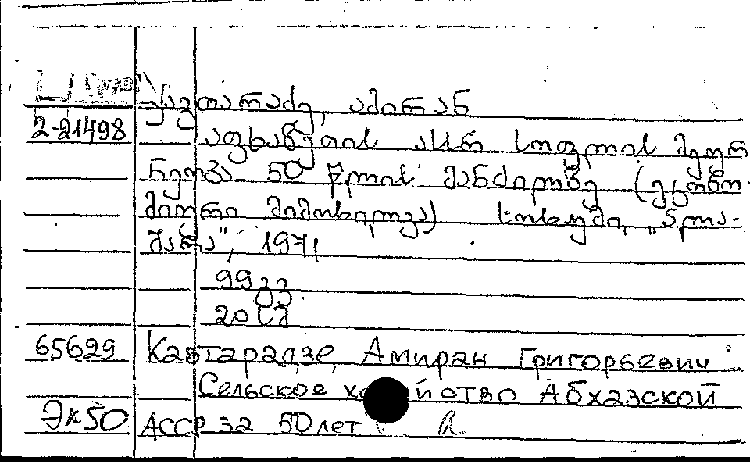 ქავთარაძე, ამირან
2-21498 აფხაზეთის ასსრ სოფლის მეურ-
ნეობა 50 წლის მანძილზე (ეკონო-
მიური მიმოხილვა) სოხუმი, „ალა-
შარა", 1971
99 გვ
20 კ
65629 Кавтарадзе, Амиран Григорьевич
Сельское хозяйство Абхазской
Эк50 АССР за 50 лет